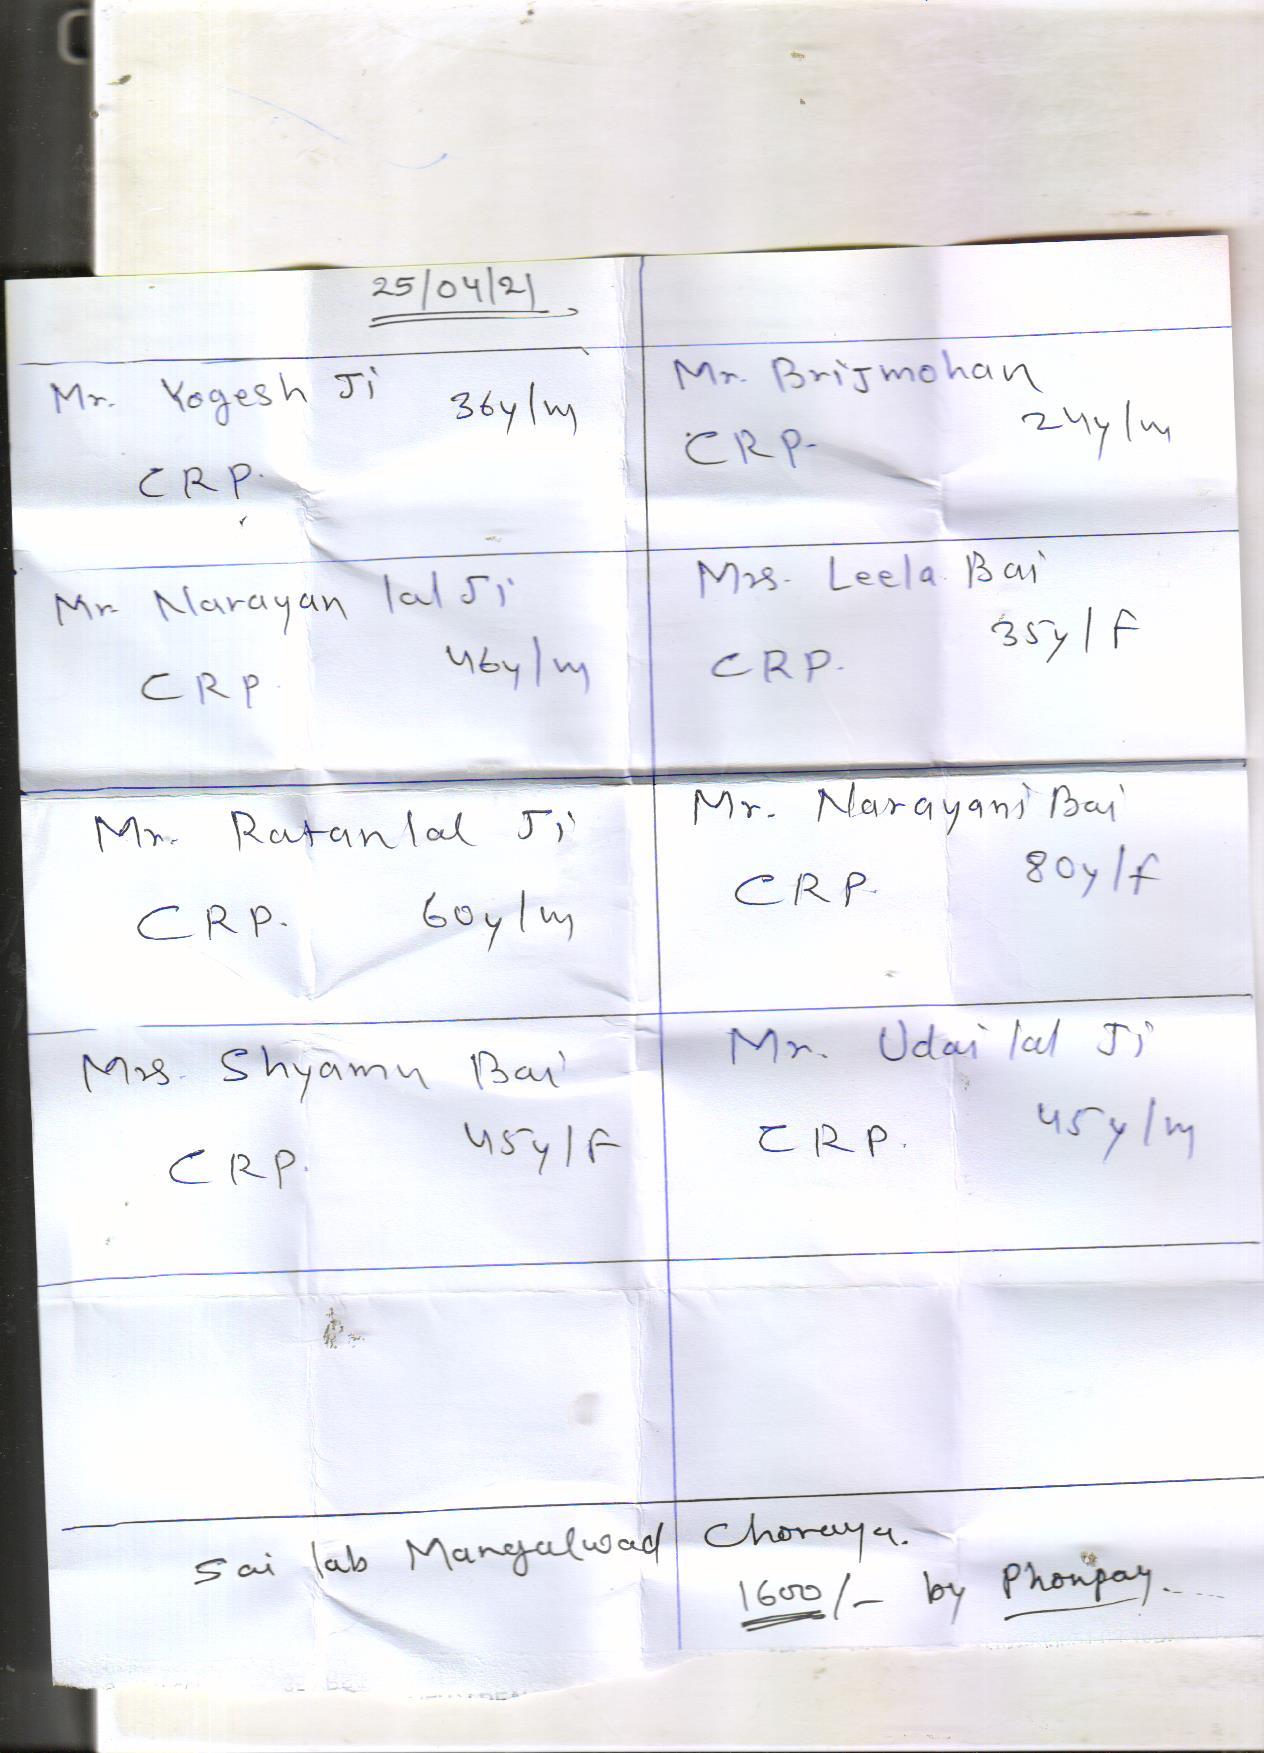 25/04/21
Mr. Yogesh Ji 36y/m
CRP.
Mr. Brijmohan
24y/m
CRP-
Mr Narayan lal Ji
46y/m
CRP.
Mrs. Leela Bai
35y/F
CRP.
Mr. Ratanlal Ji
CRP. 60y/m
Mr. Narayani Bai
80y/f
CRP
Mrs. Shyamu Bai
45y/F
CRP.
Mr. Udai lal Ji
45y/m
CRP.
Sai lab Mangalwad Choraya.
1600/- by Phonpay.